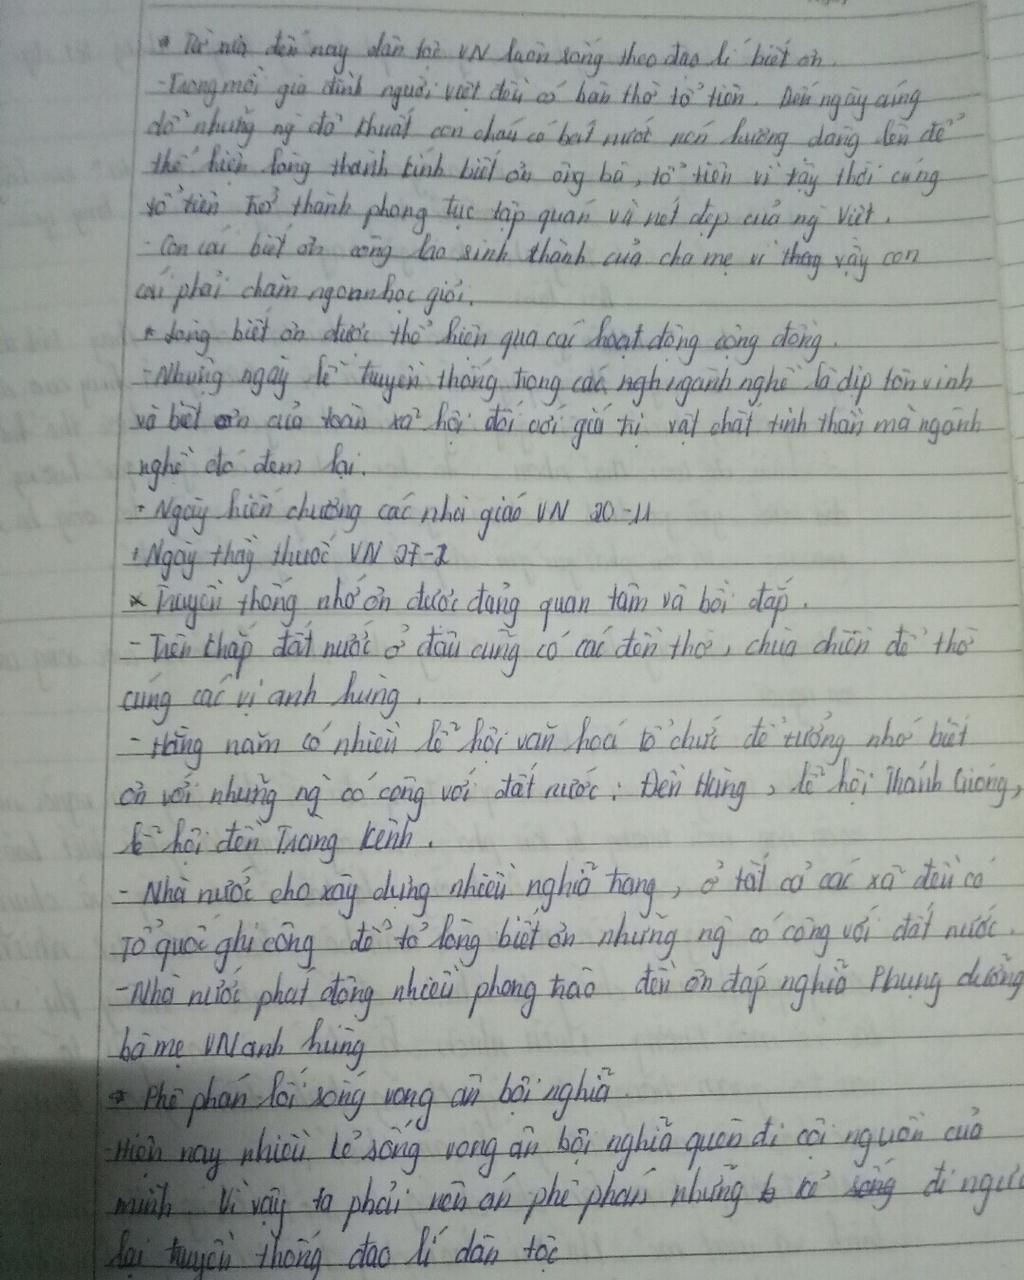 * Từ xưa đến nay dân tộc VN luôn sống theo đạo lí biết ơn.
- Trong mỗi gia đình người việt đều có bàn thờ tổ tiên. Đến ngày cúng
dỗ những ng đã khuất con cháu có bát nước nén hương dâng lên để
thể hiện lòng thành kính biết ơn ông bà, tổ tiên vì vậy thời cúng
tổ tiên trở thành phong tục tập quán và nét đẹp của ng Việt.
- Con cái biết ơn công lao sinh thành của cha mẹ vì thay vậy con
cái phải chăm ngoan học giỏi.
* Lòng biết ơn được thể hiện qua các hoạt động cộng đồng.
- Những ngày lễ truyền thống trong các ngh ngành nghề là dịp tôn vinh
và biết ơn của toàn xã hội đối với giá trị vật chất tinh thần mà ngành
nghề đó đem lại.
+ Ngày hiến chương các nhà giáo VN 20-11
+ Ngày thầy thuốc VN 27-2
* Truyền thống nhớ ơn được đảng quan tâm và bồi đắp.
- Trên khắp đất nước ở đâu cũng có các đền thờ, chùa chiền để thờ
cúng các vị anh hùng.
- Hằng năm có nhiều lễ hội văn hoá tổ chức để tưởng nhớ biết
ơn với những ng có công với đất nước: Đền Hùng, lễ hội Thánh Gióng,
lễ hội đền Tràng Kênh.
- Nhà nước cho xây dựng nhiều nghĩa trang, ở tất cả các xã đều có
Tổ quốc ghi công để tỏ lòng biết ơn những ng có công với đất nước.
- Nhà nước phát động nhiều phong trào đền ơn đáp nghĩa Phụng dưỡng
bà mẹ VN anh hùng
* Phê phán lối sống vong ân bội nghĩa
- Hiện nay nhiều kẻ sống vong ân bội nghĩa quên đi cội nguồn của
mình. Vì vậy ta phải lên án phê phán những kẻ sống đi ngược
lại truyền thống đạo lí dân tộc